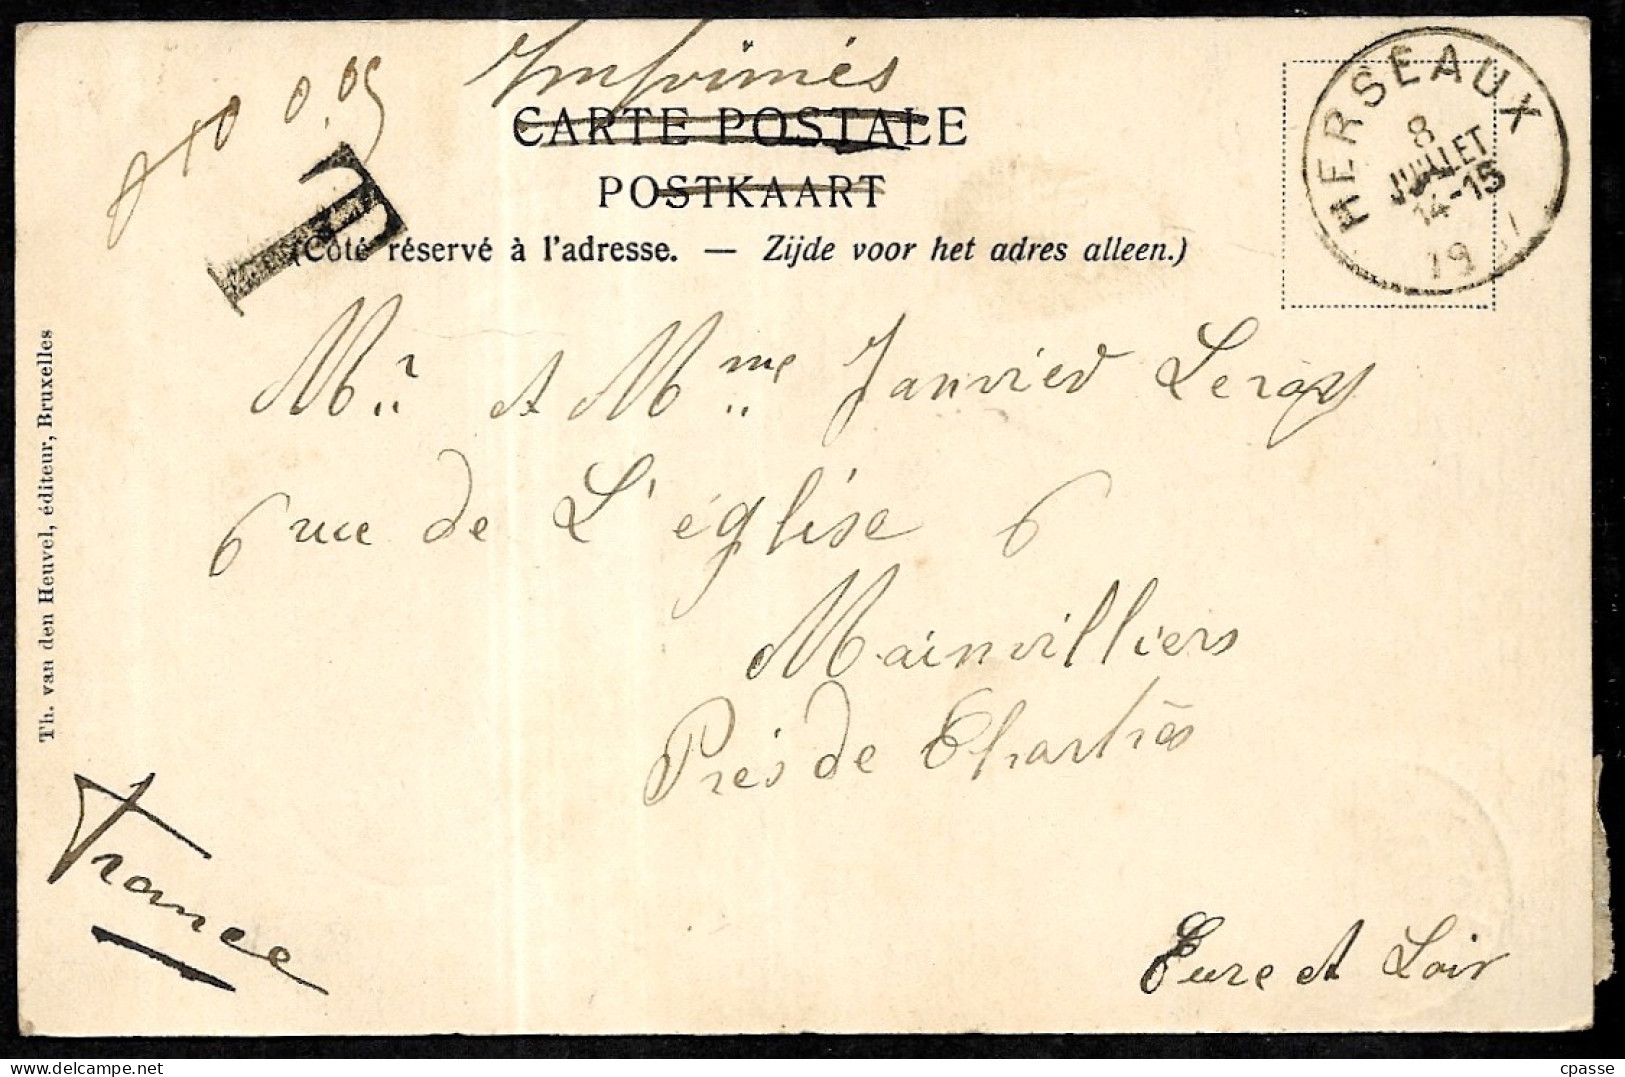 Imprimés
0,05
T
CARTE POSTALE
POSTKAART
(Côté réservé à l'adresse. — Zijde voor het adres alleen.)
HERSEAUX
8
JUILLET
14-15
Mr et Mme Janvier Leroy
6 rue de L'église 6
Mainvilliers
Près de Chartres
Eure et Loir
France
Th. van den Heuvel, éditeur, Bruxelles
cpasse